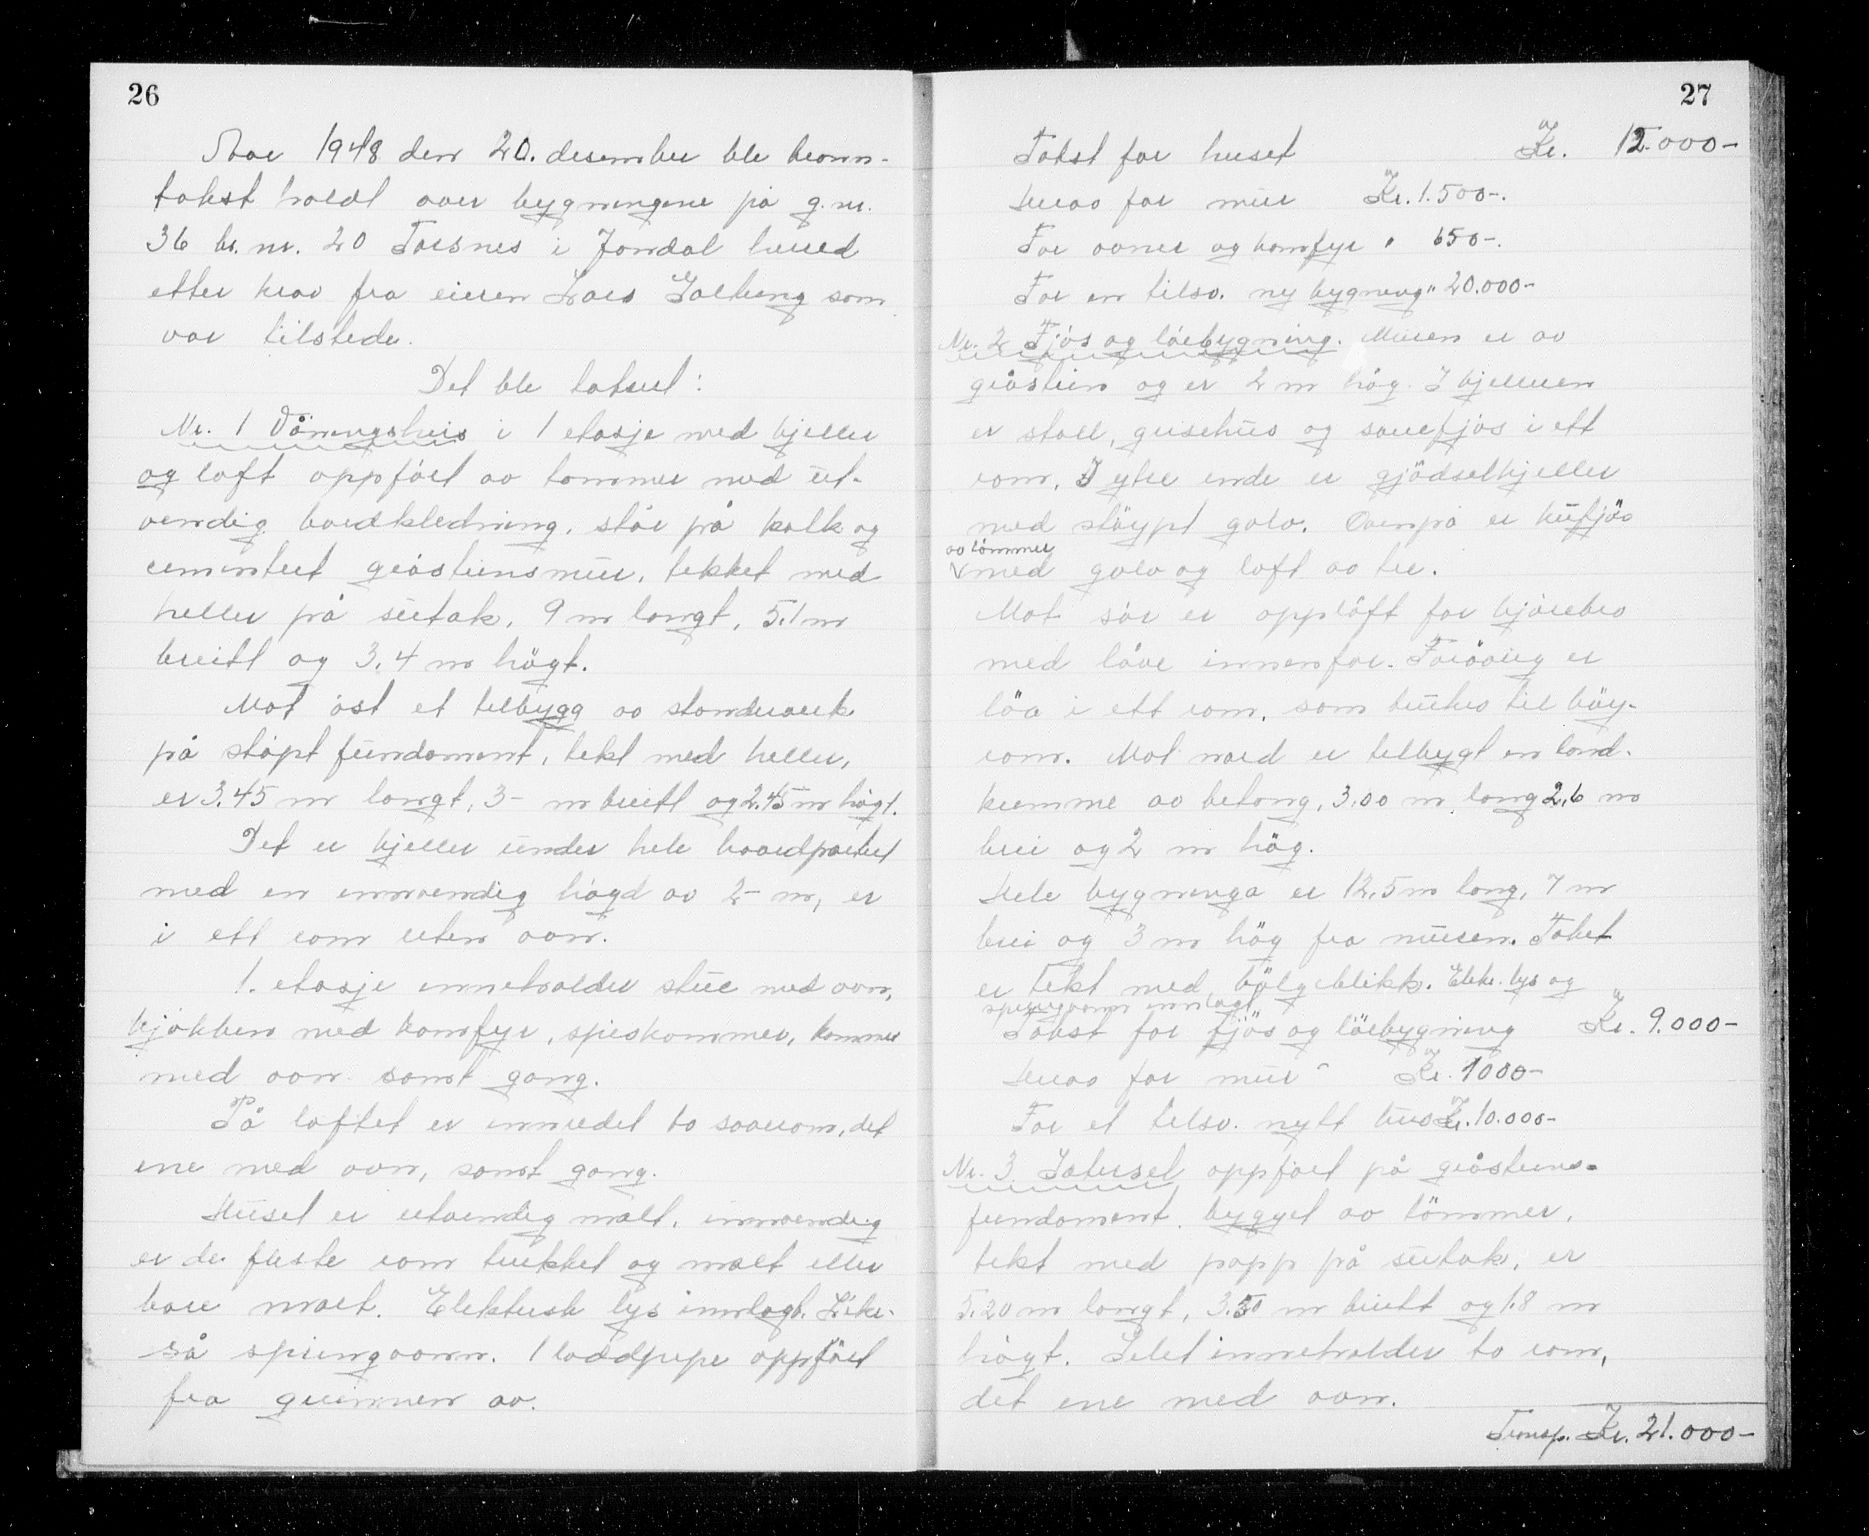 26
Aar 1948 den 20. desember ble brann-
takst holdt over bygningene på g.nr.
36 br. nr. 20 Torsnes i Jondal herred
etter krav fra eieren Lars Solberg som
var tilstede.
Det ble taksert:
Nr. 1 Våningshus i 1 etasje med kjeller
og loft oppført av tømmer med ut-
vendig bordkledning, står på kalk og
cementert gråsteinsmur, tekket med
heller på sutak, 9 m langt, 5,1 m
breitt og 3,4 m högt.
Mot øst et tilbygg av standverk
på støpt fundament, tekt med heller,
er 3.45 m langt, 3- m breitt og 2.45 m högt.
Det er kjeller under hele hovedpartiet
med en innvendig høgd av 2- m, er
i ett rom uten ovn.
1. etasje inneholder stue med ovn,
kjøkken med komfyr, spiskammer, kammer
med ovn samt gang.
På loftet er innredet to soverom, det
ene med ovn, samt gang.
Huset er utvendig malt, innvendig
er de fleste rom trukket og malt eller
bare malt. Elektrisk lys innlagt. Like-
så springvann. 1 loddpipe oppført
fra grunnen av.
27
Takst for huset Kr. 12.000-
Herav for mur Kr. 1.500-.
For ovner og komfyr " 650-.
For en tilsv. ny bygning " 20.000-
Nr. 2 Fjös og löebygning. Muren er av
gråstein og er 2 m høg. I kjelleren
er stall, grisehus og sauefjös i ett
rom. I ytre ende er gjödselkjeller
med stöypt golv. Ovenpå er kufjös
av tömmer
v med golv og loft av tre.
Mot sör er oppløft for kjörebro
med låve innenfor. Forövrig er
löa i ett rom, som brukes til höy-
rom. Mot nord er tilbygt en land-
kumme av betong, 3.00 m lang 2,6 m
brei og 2 m høg.
Hele bygninga er 12,5 m lang, 7 m
brei og 3 m høg fra muren. Taket
er tekt med bölgeblikk. Elektr. lys og
springvann innlagt.
Takst for fjös og löebygning Kr. 9.000-
Herav for mur Kr. 1000-
For et tilsv. nytt hus Kr. 10.000-
Nr. 3 Selhuset oppført på gråsteins-
fundament, bygget av tömmer,
tekt med papp på sutak, er
5.20 m langt, 3.50 m breitt og 1.8 m
högt. Selet inneholder to rom,
det ene med ovn.
Transp. Kr. 21.000-